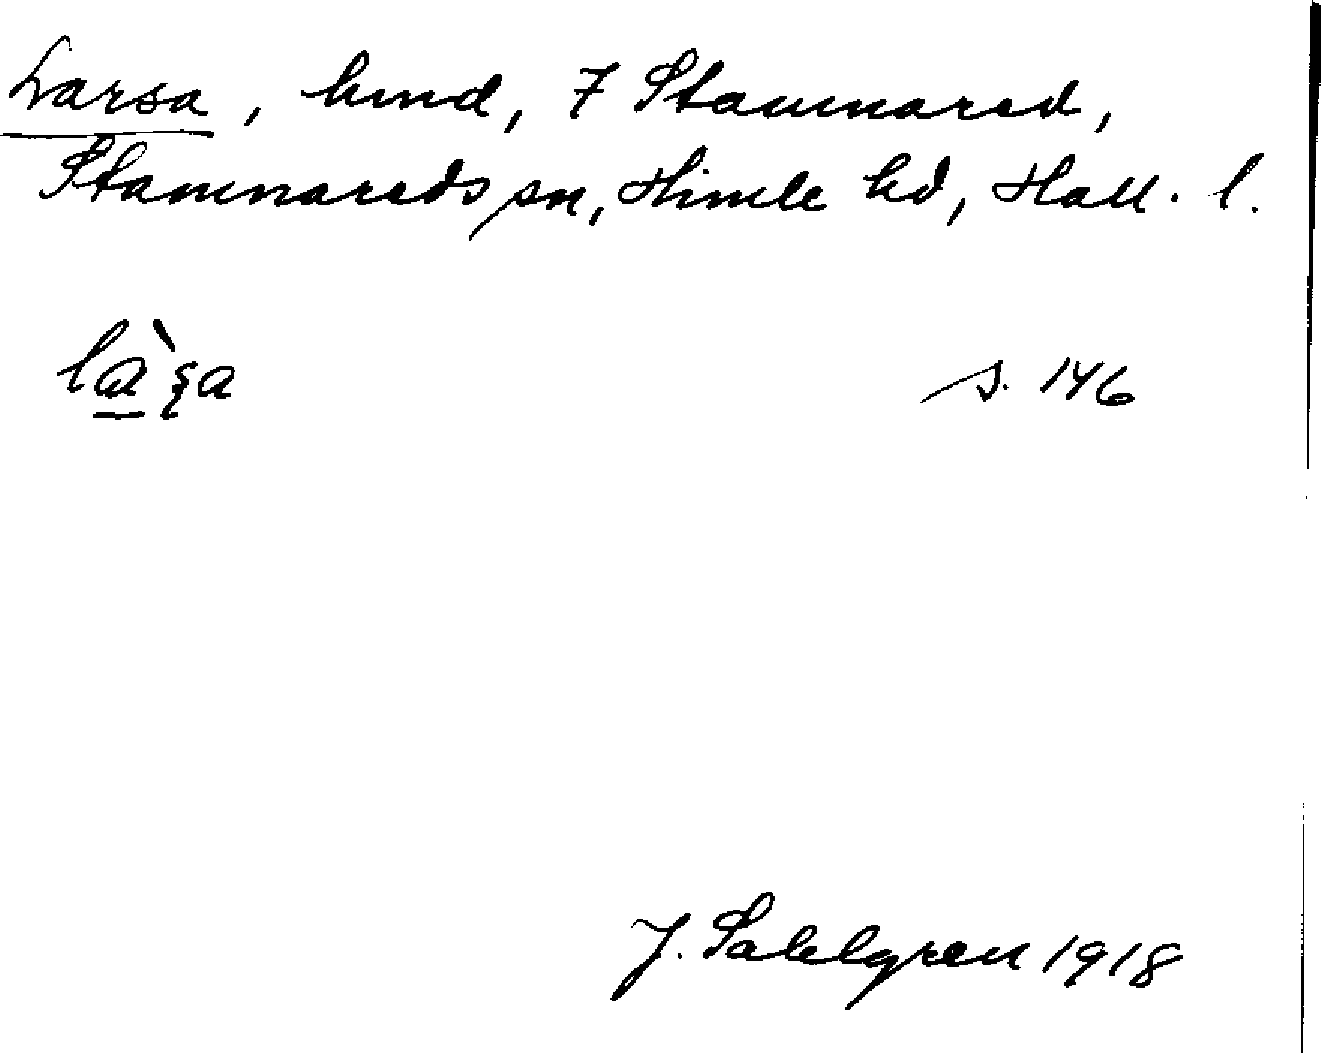 Larsa, hmd, 7 Stamnared,
Stamnareds sn, Himle hd, Hall. l.
la̱`ʂa s. 146
J. Sahlgren 1918